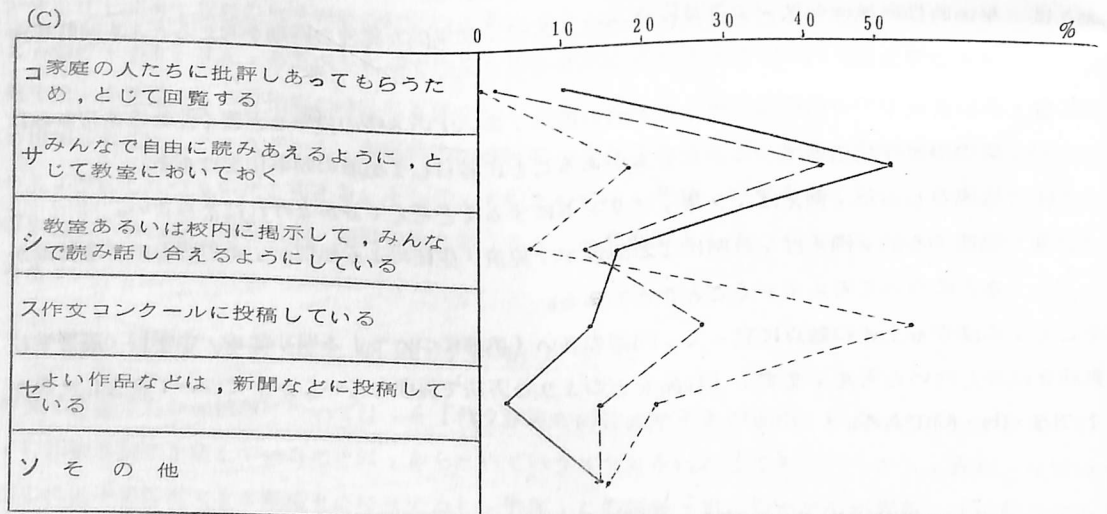 (C)
0 10 20 30 40 50 %
コ 家庭の人たちに批評しあってもらうた
め，とじて回覧する
サ みんなで自由に読みあえるように，と
じて教室においておく
シ 教室あるいは校内に掲示して，みんな
で読み話し合えるようにしている
ス 作文コンクールに投稿している
セ よい作品などは，新聞などに投稿して
いる
ソ その他